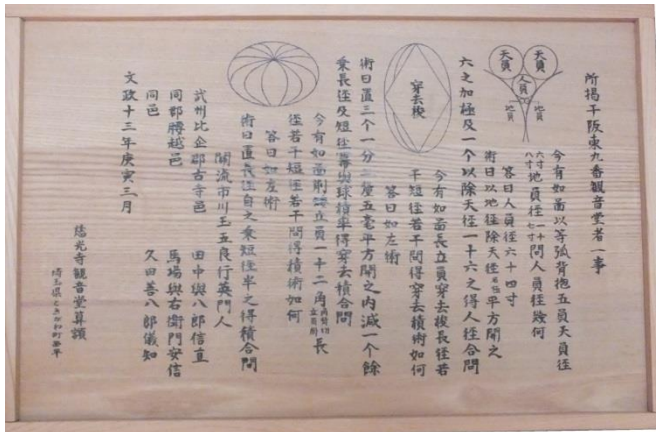 所掲于阪東九番観音堂者一事
天員
天員
人員
地員
地員
今有如図以等弧背抱五員天員径
六寸八寸地員径一十七寸問人員径幾何
答曰人員径六十四寸
術曰以地径除天径平方開之
六之加極及一个以除天径一十六之得人径合問
穿去積
今有如図長立員穿去積長径若
干短径若干問得穿去積術如何
答曰如左術
術曰置三个一分二厘五毛平方開之内減一个余
乗長径及短径冪與球積率得穿去積合問
今有如図削立員一十二角長
径若干短径若干問得積術如何
答曰如左術
術曰置長径自之乗短径半之得積合問
関流市川玉五良行英門人
武州比企郡古寺邑 田中與八郎信直
同郡腰越邑 馬場與右衛門安信
同邑 久田善八郎儀知
文政十三年庚寅三月
慈光寺観音堂算額
埼玉県